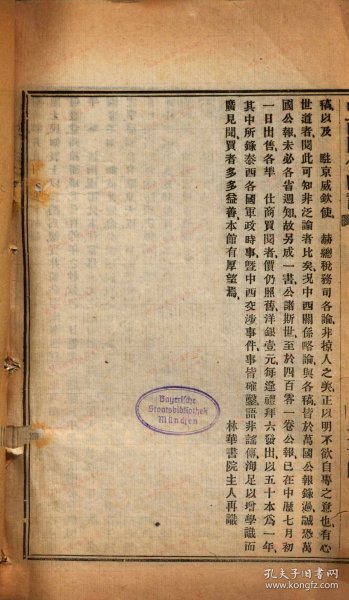 稿以及　駐京威欽使　赫總稅務司各論非掠人之美正以明不欲自專之意也有心
世道者閱此可知非泛論者比矣況中西關係略論與各稿皆於萬國公報錄過誠恐萬
國公報未必各省週知故另成一書公諸斯世至於四百零一卷公報已在中歷七月初
一日出售各埠　仕商買閱者價仍照舊洋銀壹元每逢禮拜六發出以五十本爲一年
其中所錄泰西各國軍政時事暨中西交涉事件事皆確鑿語非謠傳洵足以增學識而
廣見聞買者多多益善本館有厚望焉
林華書院主人再識
Bayerische
Staatsbibliothek
München
孔夫子旧书网
www.kongfz.com